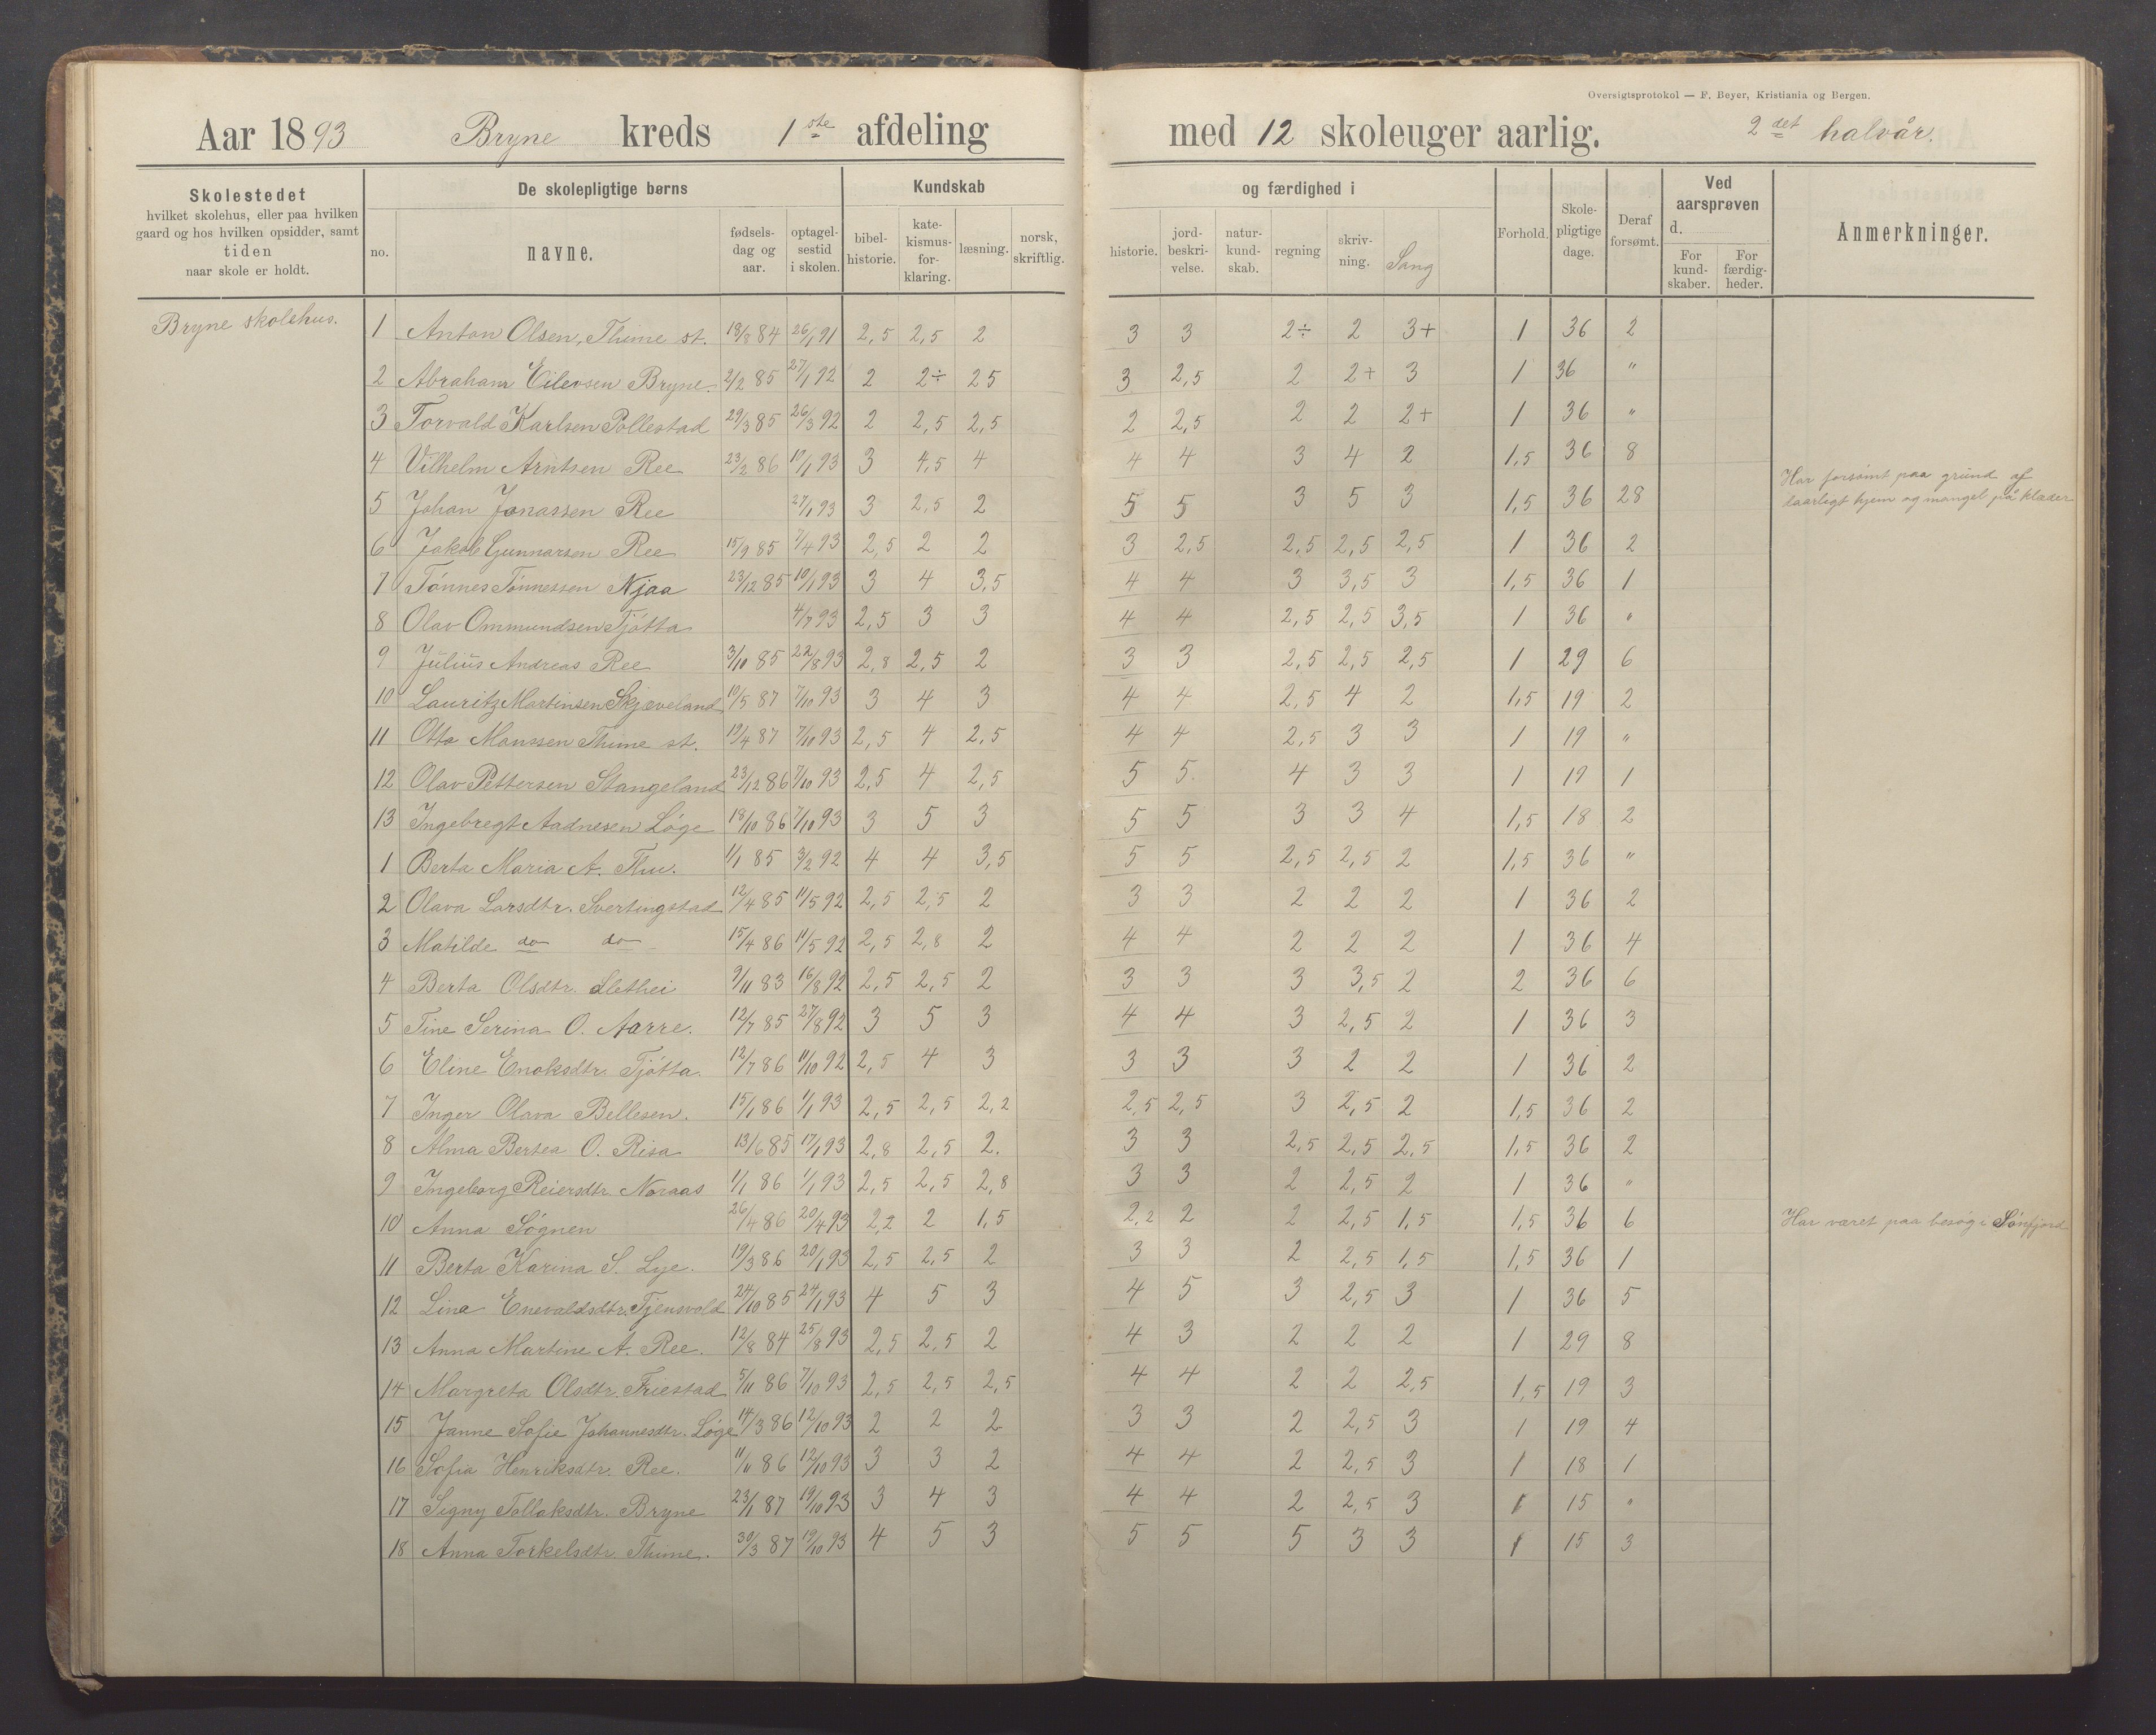 Oversigtsprotokol — F. Beyer, Kristiania og Bergen.
Aar 1893 Bryne kreds 1ste afdeling med 12 skoleuger aarlig. 2det halvår.
Skolestedet
hvilket skolehus, eller paa hvilken
gaard og hos hvilken opsidder, samt
tiden
naar skole er holdt.
De skolepligtige børns
no. navne. fødsels-dag og aar. optagel-sestid i skolen.
Kundskab og færdighed i
bibel-historie. kate-kismus-for-klaring. læsning. norsk, skriftlig. historie. jord-beskri-velse. natur-kund-skab. regning skriv-ning. Sang
Forhold. Skole-pligtige dage. Deraf forsømt.
Ved aarsprøven d.
For kund-skaber. For færdig-heder.
Anmerkninger.
Bryne skolehus.
1 Anton Olsen, Thime st. 18/8 84 26/1 91 2,5 2,5 2 3 3 2÷ 2 3+ 1 36 2
2 Abraham Eilevsen Bryne 2/2 85 27/1 92 2 2÷ 25 3 2,5 2 2+ 3 1 36 "
3 Torvald Karlsen Pollestad 29/3 85 26/3 92 2 2,5 2,5 2 2,5 2 2 2+ 1 36 "
4 Vilhelm Arntsen Ree 23/2 86 10/1 93 3 4,5 4 4 4 3 4 2 1,5 36 8
5 Johan Jonassen Ree 27/1 93 3 2,5 2 5 5 3 5 3 1,5 36 28 Har forsømt paa grund af
daarligt hjem og mangel på klæder
6 Jakob Gunnarsen Ree 15/9 85 7/4 93 2,5 2 2 3 2,5 2,5 2,5 2,5 1 36 2
7 Tønnes Tønnessen Njaa 23/12 85 10/1 93 3 4 3,5 4 4 3 3,5 3 1,5 36 1
8 Olav Ommundsen Tjøtta 4/7 93 2,5 3 3 4 4 2,5 2,5 3,5 1 36 "
9 Julius Andreas Ree 3/10 85 22/8 93 2,8 2,5 2 3 3 2,5 2,5 2,5 1 29 6
10 Lauritz Martinsen Skjæveland 10/5 87 7/10 93 3 4 3 4 4 2,5 4 2 1,5 19 2
11 Otto Monssen Thime st. 19/4 87 7/10 93 2,5 4 2,5 4 4 2,5 3 3 1 19 "
12 Olav Pettersen Stangeland 23/12 86 7/10 93 2,5 4 2,5 5 5 4 3 3 1 19 1
13 Ingebregt Aadnesen Løge 18/10 86 7/10 93 3 5 3 5 5 3 3 4 1,5 18 2
1 Berta Maria A. Thu. 1/1 85 3/2 92 4 4 3,5 5 5 2,5 2,5 2 1,5 36 "
2 Olava Larsdtr. Svertingstad 12/4 85 11/5 92 2,5 2,5 2 3 3 2 2 2 1 36 2
3 Matilde do do 15/4 86 11/5 92 2,5 2,8 2 4 4 2 2 2 1 36 4
4 Berta Olsdtr. Slethei 9/11 83 16/8 92 2,5 2,5 2 3 3 3 3,5 2 2 36 6
5 Tine Serina O. Aarre. 12/7 85 27/8 92 3 5 3 4 4 3 2,5 2 1 36 3
6 Eline Enoksdtr. Tjøtta. 12/7 86 11/10 92 2,5 4 3 3 3 3 2 2 1 36 2
7 Inger Olava Bellesen. 15/1 86 1/1 93 2,5 2,5 2,2 2,5 2,5 3 2,5 2 1,5 36 2
8 Alma Bertea O. Risa 13/6 85 17/1 93 2,8 2,5 2. 3 3 2,5 2,5 2,5 1,5 36 2
9 Ingeborg Reiersdtr. Noraas 1/1 86 1/1 93 2,5 2,5 2,8 3 3 2 2,5 2 1 36 "
10 Anna Søgnen 26/4 86 20/4 93 2,2 2 1,5 2,2 2 2 2,5 1,5 1,5 36 6 Har været paa besøg i Sønfjord
11 Berta Karina S. Lye. 19/3 86 20/1 93 2,5 2,5 2 3 3 2 2,5 1,5 1,5 36 1
12 Lina Enevaldsdtr. Tjensvold 24/10 85 24/1 93 4 5 3 4 5 3 2,5 3 1 36 5
13 Anna Martine A. Ree. 12/8 84 25/8 93 2,5 2,5 2 4 3 2 2 2 1 29 8
14 Margreta Olsdtr. Friestad 5/11 86 7/10 93 2,5 2,5 2,5 4 4 2 2 2,5 1,5 19 3
15 Janne Sofie Johannesdtr. Løge 14/3 86 12/10 93 2 2 2 3 3 2 2,5 3 1 19 4
16 Sofia Henriksdtr. Ree. 11/11 86 12/10 93 3 3 2 4 4 2 2,5 3 1 18 1
17 Signy Tollaksdtr. Bryne 23/1 87 19/10 93 3 4 3 4 4 2 2,5 3 1 15 "
18 Anna Torkelsdtr. Thime. 30/3 87 19/10 93 4 5 3 5 5 5 3 3 1 15 3